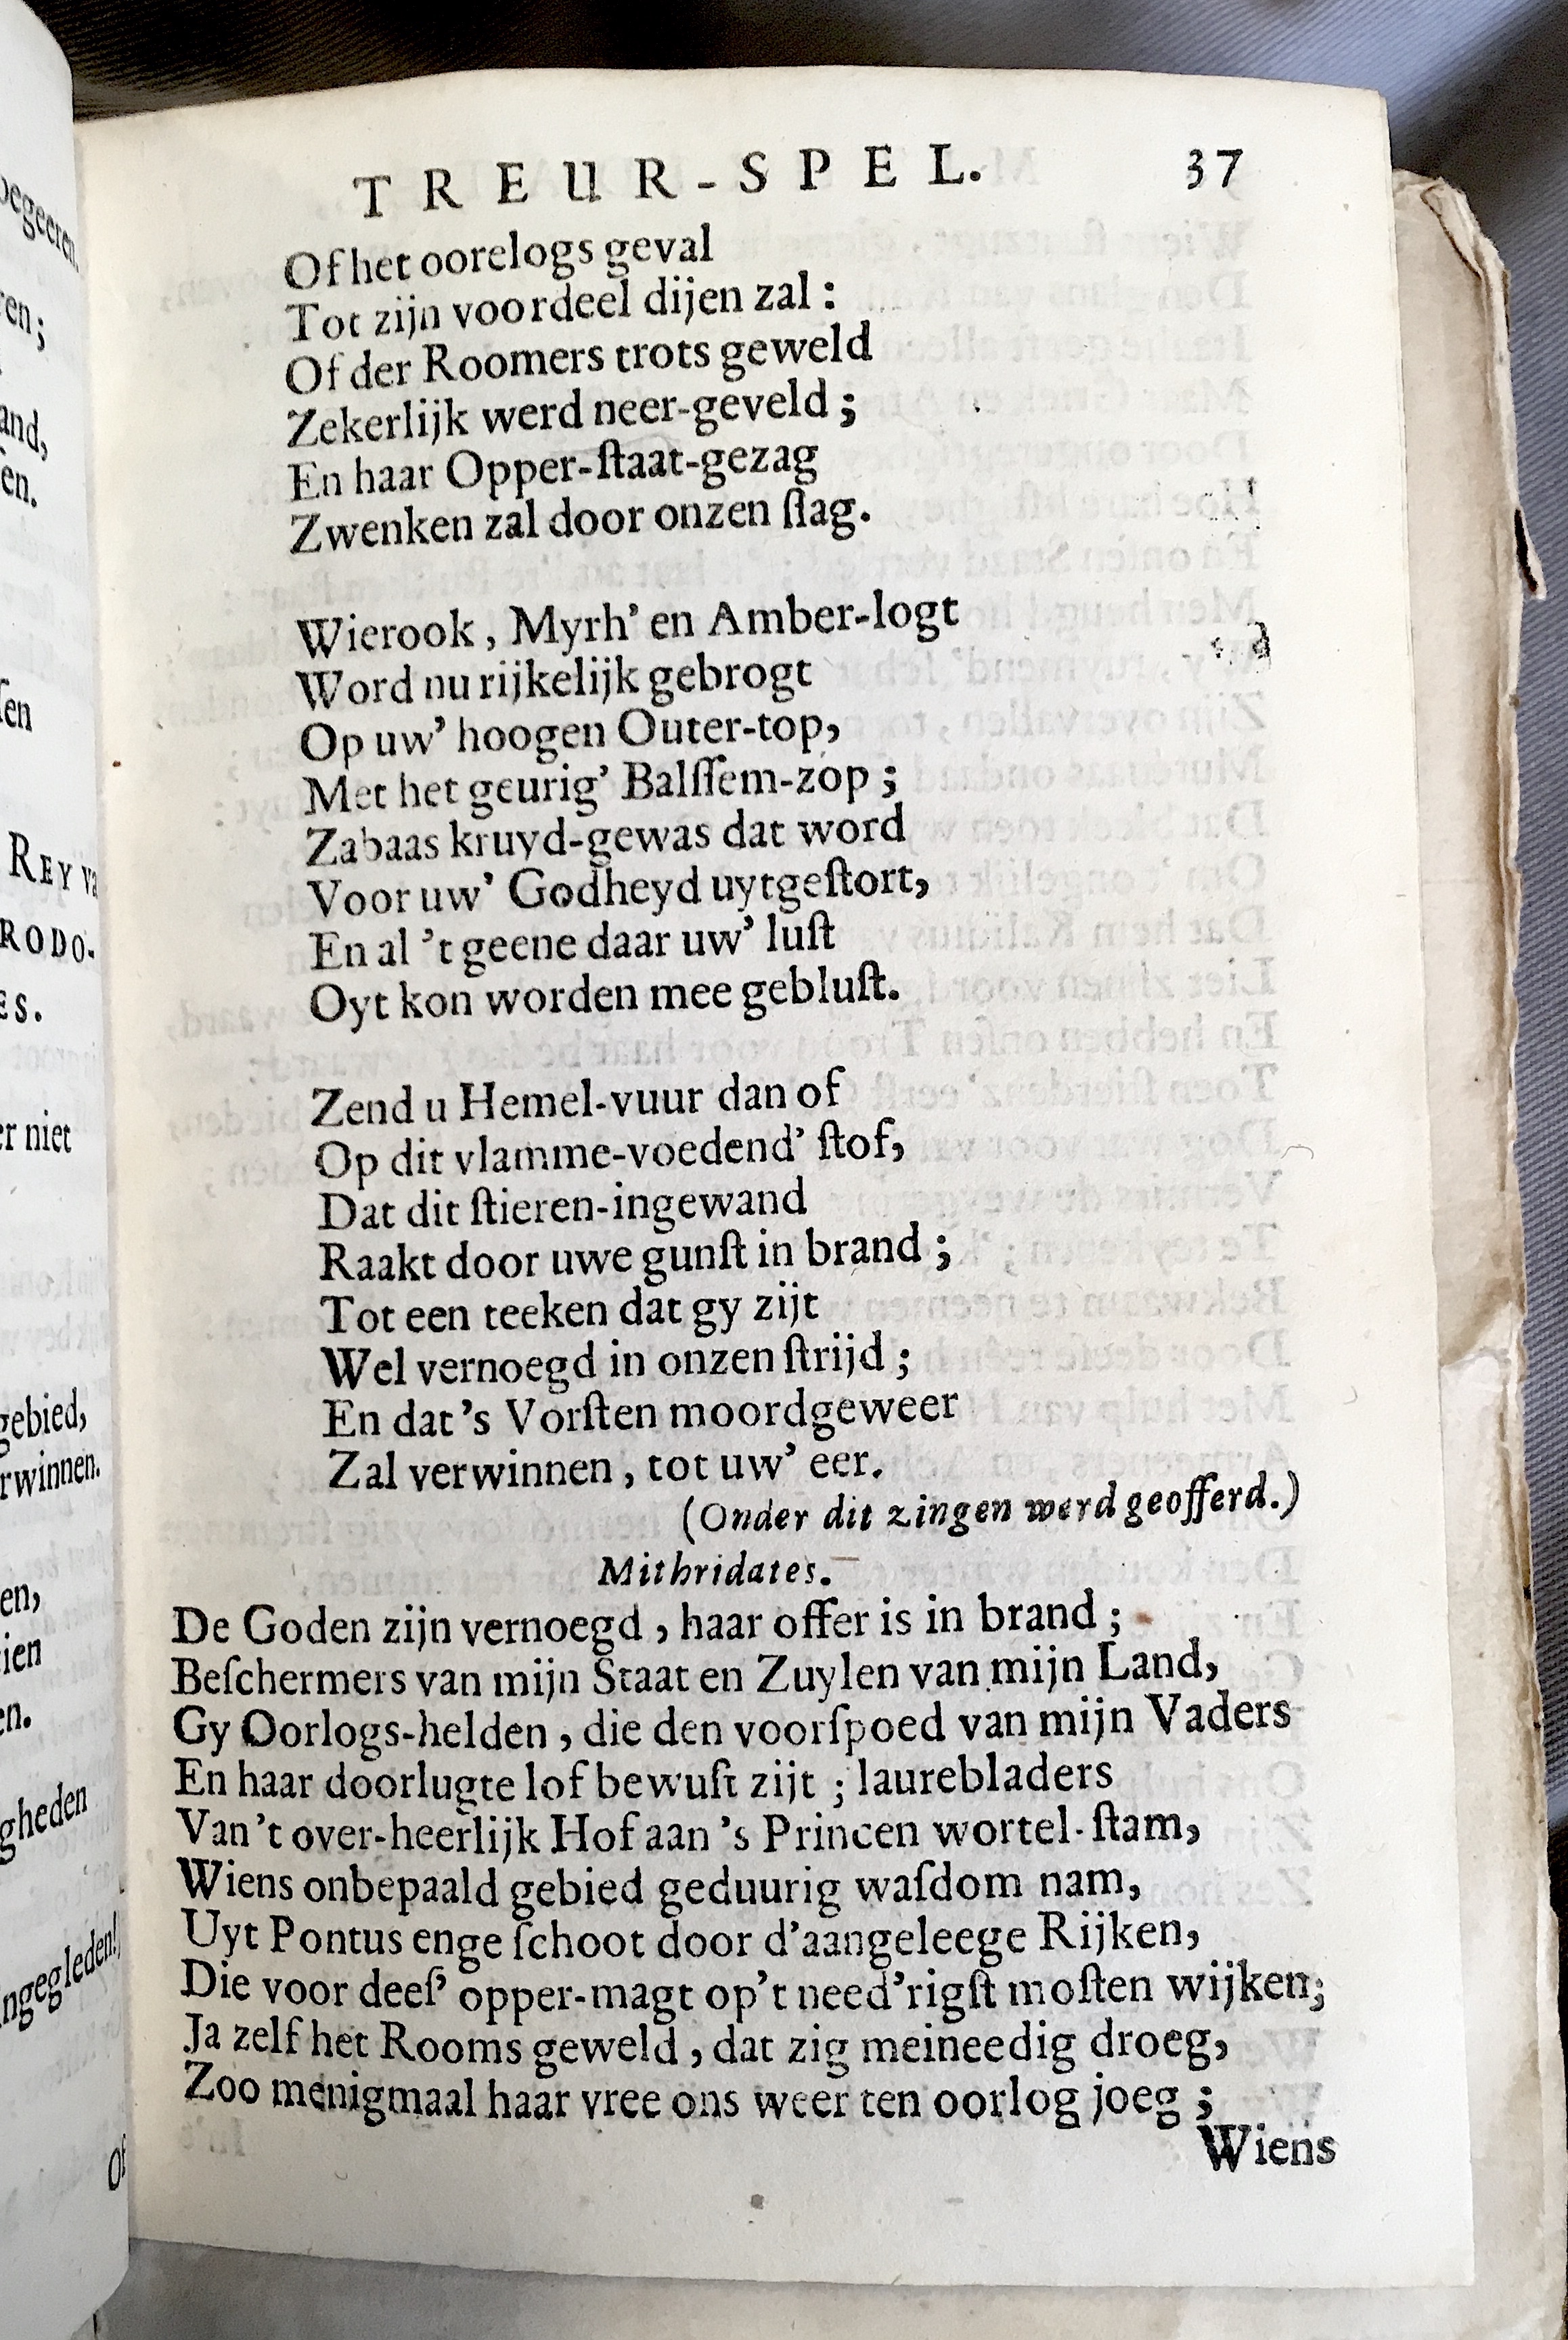 TREUR-SPEL. 37
Of het oorelogs geval
Tot zijn voordeel dijen zal:
Of der Roomers trots geweld
Zekerlijk werd neer-geveld;
En haar Opper-ſtaat-gezag
Zwenken zal door onzen ſlag.
Wierook, Myrh' en Amber-logt
Word nu rijkelijk gebrogt
Op uw' hoogen Outer-top,
Met het geurig' Balſſem-zop;
Zabaas kruyd-gewas dat word
Voor uw' Godheyd uytgeſtort,
En al 't geene daar uw' luſt
Oyt kon worden mee gebluſt.
Zend u Hemel-vuur dan of
Op dit vlamme-voedend' ſtof,
Dat dit ſtieren-ingewand
Raakt door uwe gunſt in brand;
Tot een teeken dat gy zijt
Wel vernoegd in onzen ſtrijd;
En dat 's Vorſten moordgeweer
Zal verwinnen, tot uw' eer.
(Onder dit zingen werd geofferd.)
Mithridates.
De Goden zijn vernoegd, haar offer is in brand;
Beſchermers van mijn Staat en Zuylen van mijn Land,
Gy Oorlogs-helden, die den voorſpoed van mijn Vaders
En haar doorlugte lof bewuſt zijt; laurebladers
Van 't over-heerlijk Hof aan 's Princen wortel-ſtam,
Wiens onbepaald gebied geduurig waſdom nam,
Uyt Pontus enge ſchoot door d'aangeleege Rijken,
Die voor deeſ' opper-magt op't need'rigſt moſten wijken;
Ja zelf het Rooms geweld, dat zig meineedig droeg,
Zoo menigmaal haar vree ons weer ten oorlog joeg;
Wiens